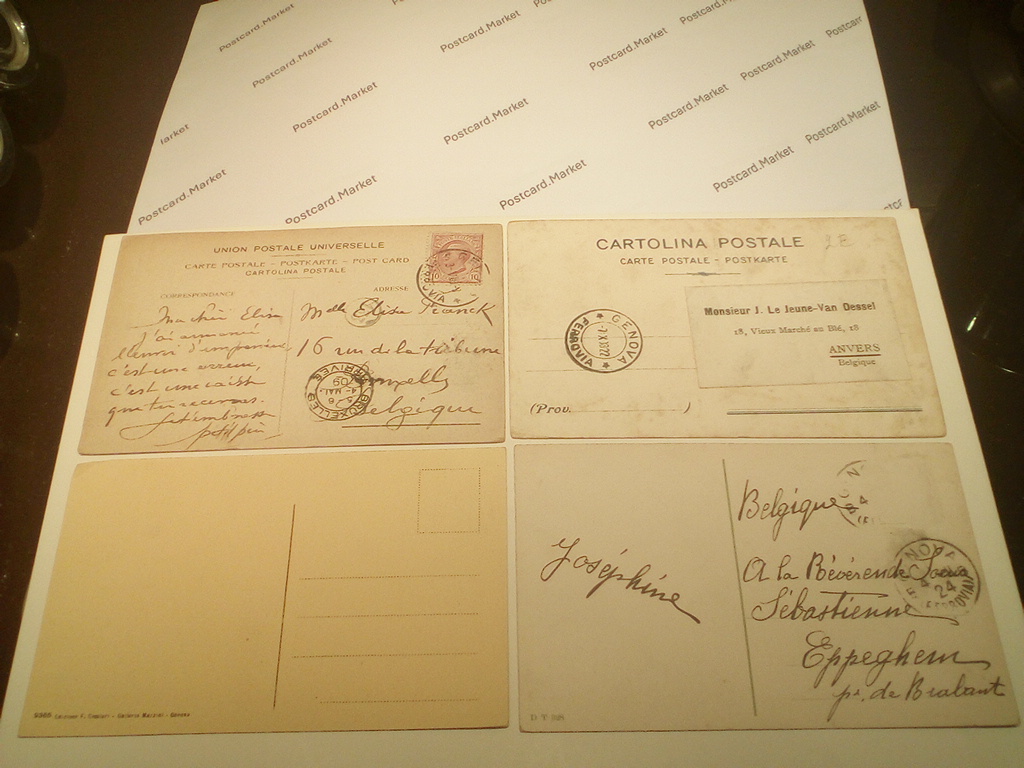 Postcard.Market
Postcard.Market
Postcard.Market
Postcard.Market
Postcard.Market
Postcard.Market
Postcard.Market
Postcard.Market
Postcard.Market
Market
Postcard.Market
Postcard.Market
Postcard.Market
Postcard.Market
Postcard.Market
UNION POSTALE UNIVERSELLE
CARTE POSTALE - POSTKARTE - POST CARD
CARTOLINA POSTALE
CORRESPONDANCE
ADRESSE
10 10
FERROVIA
Ma chère Elisa
j'ai
c'est une
c'est une
que tu recevras.
petit
Melle Elisa
16 rue de la tribune
Bruxelles
Belgique
BRUXELLES
ARRIVEE
09
CARTOLINA POSTALE
CARTE POSTALE - POSTKARTE
2E
GENOVA
FERROVIA
Monsieur J. Le Jeune-Van Dessel
18, Vieux Marché au Blé, 18
ANVERS
Belgique
(Prov. )
9566
Genova
Joséphine
Belgique
A la Révérende Soeur
Sébastienne
Eppeghem
pr. de Brabant
NOVA
24
FERROVIA
D Y